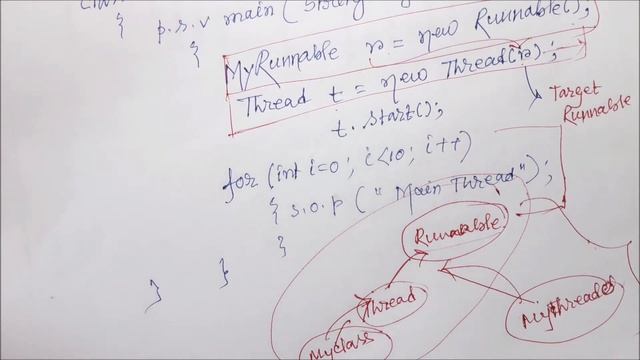 { p.s.v main(String
{
MyRunnable r = new Runnable();
Thread t = new Thread(r);
Target
Runnable
t.start();
for (int i=0; i<10; i++)
{ s.o.p ("Main Thread");
}
}
}
Runnable
Thread
Mythreads
Myclass